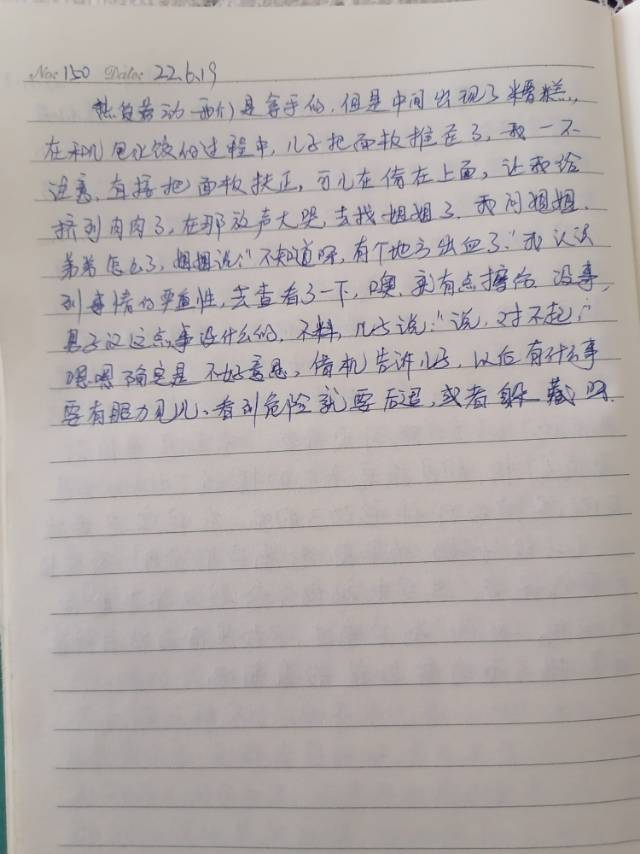 No: 150 Date: 22.6.19
劳动 我们是拿手的,但是中间出现了糟糕,
在和儿包水饺的过程中,儿子把面板推歪了,我一不
注意,直接把面板扶正,可儿在倚在上面,让我给
挤到肉肉了,在那放声大哭,去找姐姐了,我问姐姐,
弟弟怎么了,姐姐说:"不知道呀,有个地方出血了."我认识
到事情的严重性,去查看了一下,噢,就有点擦伤 没事,
男子汉这点事没什么的,不料,儿子说:"说,对不起"
嗯嗯 确定是 不好意思,借机告诉儿子,以后有什么事
要有眼力见儿、看到危险就要后退,或者躲藏呀.